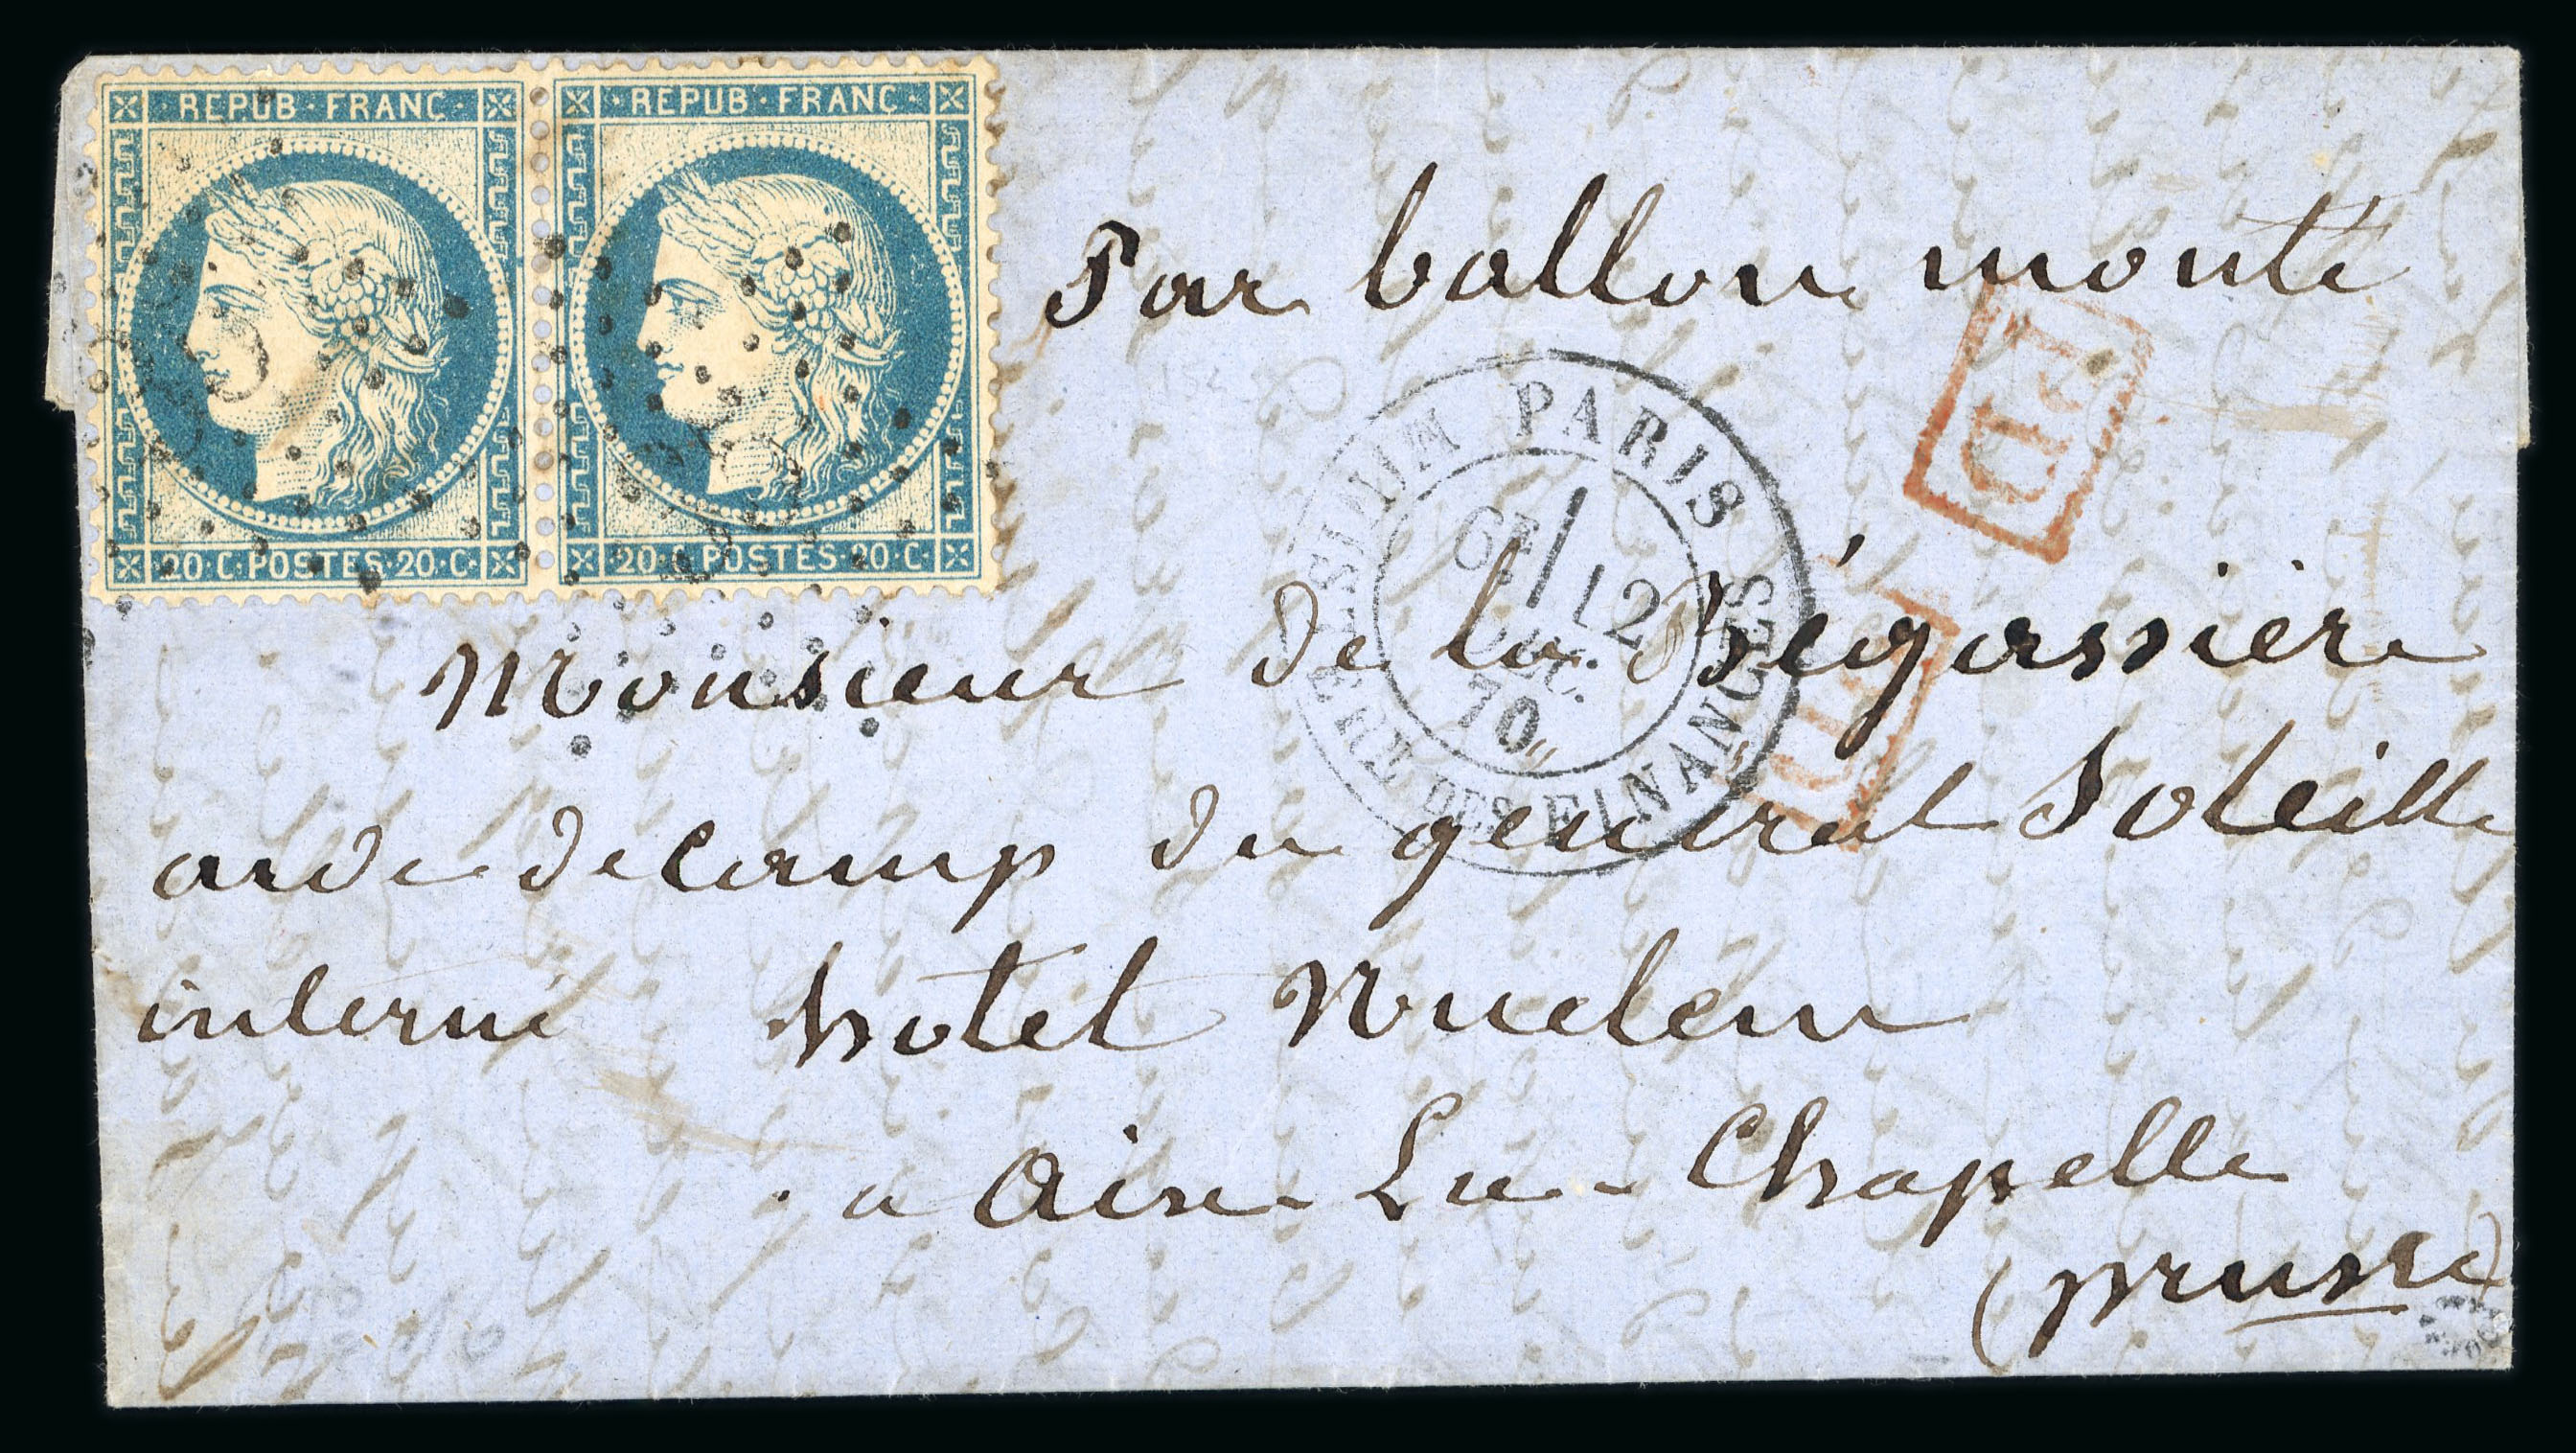 REPUB·FRANC· REPUB·FRANC·
20·C·POSTES·20·C· 20·C·POSTES·20·C·
Par ballon monté
PD
PARIS
6E/12
DEC.
70
RE DES FINANCES
PD
Monsieur de la Bégassière
aide de camp du général Soleille
interné hotel Nuelen
a Aix-La-Chapelle
(prusse)